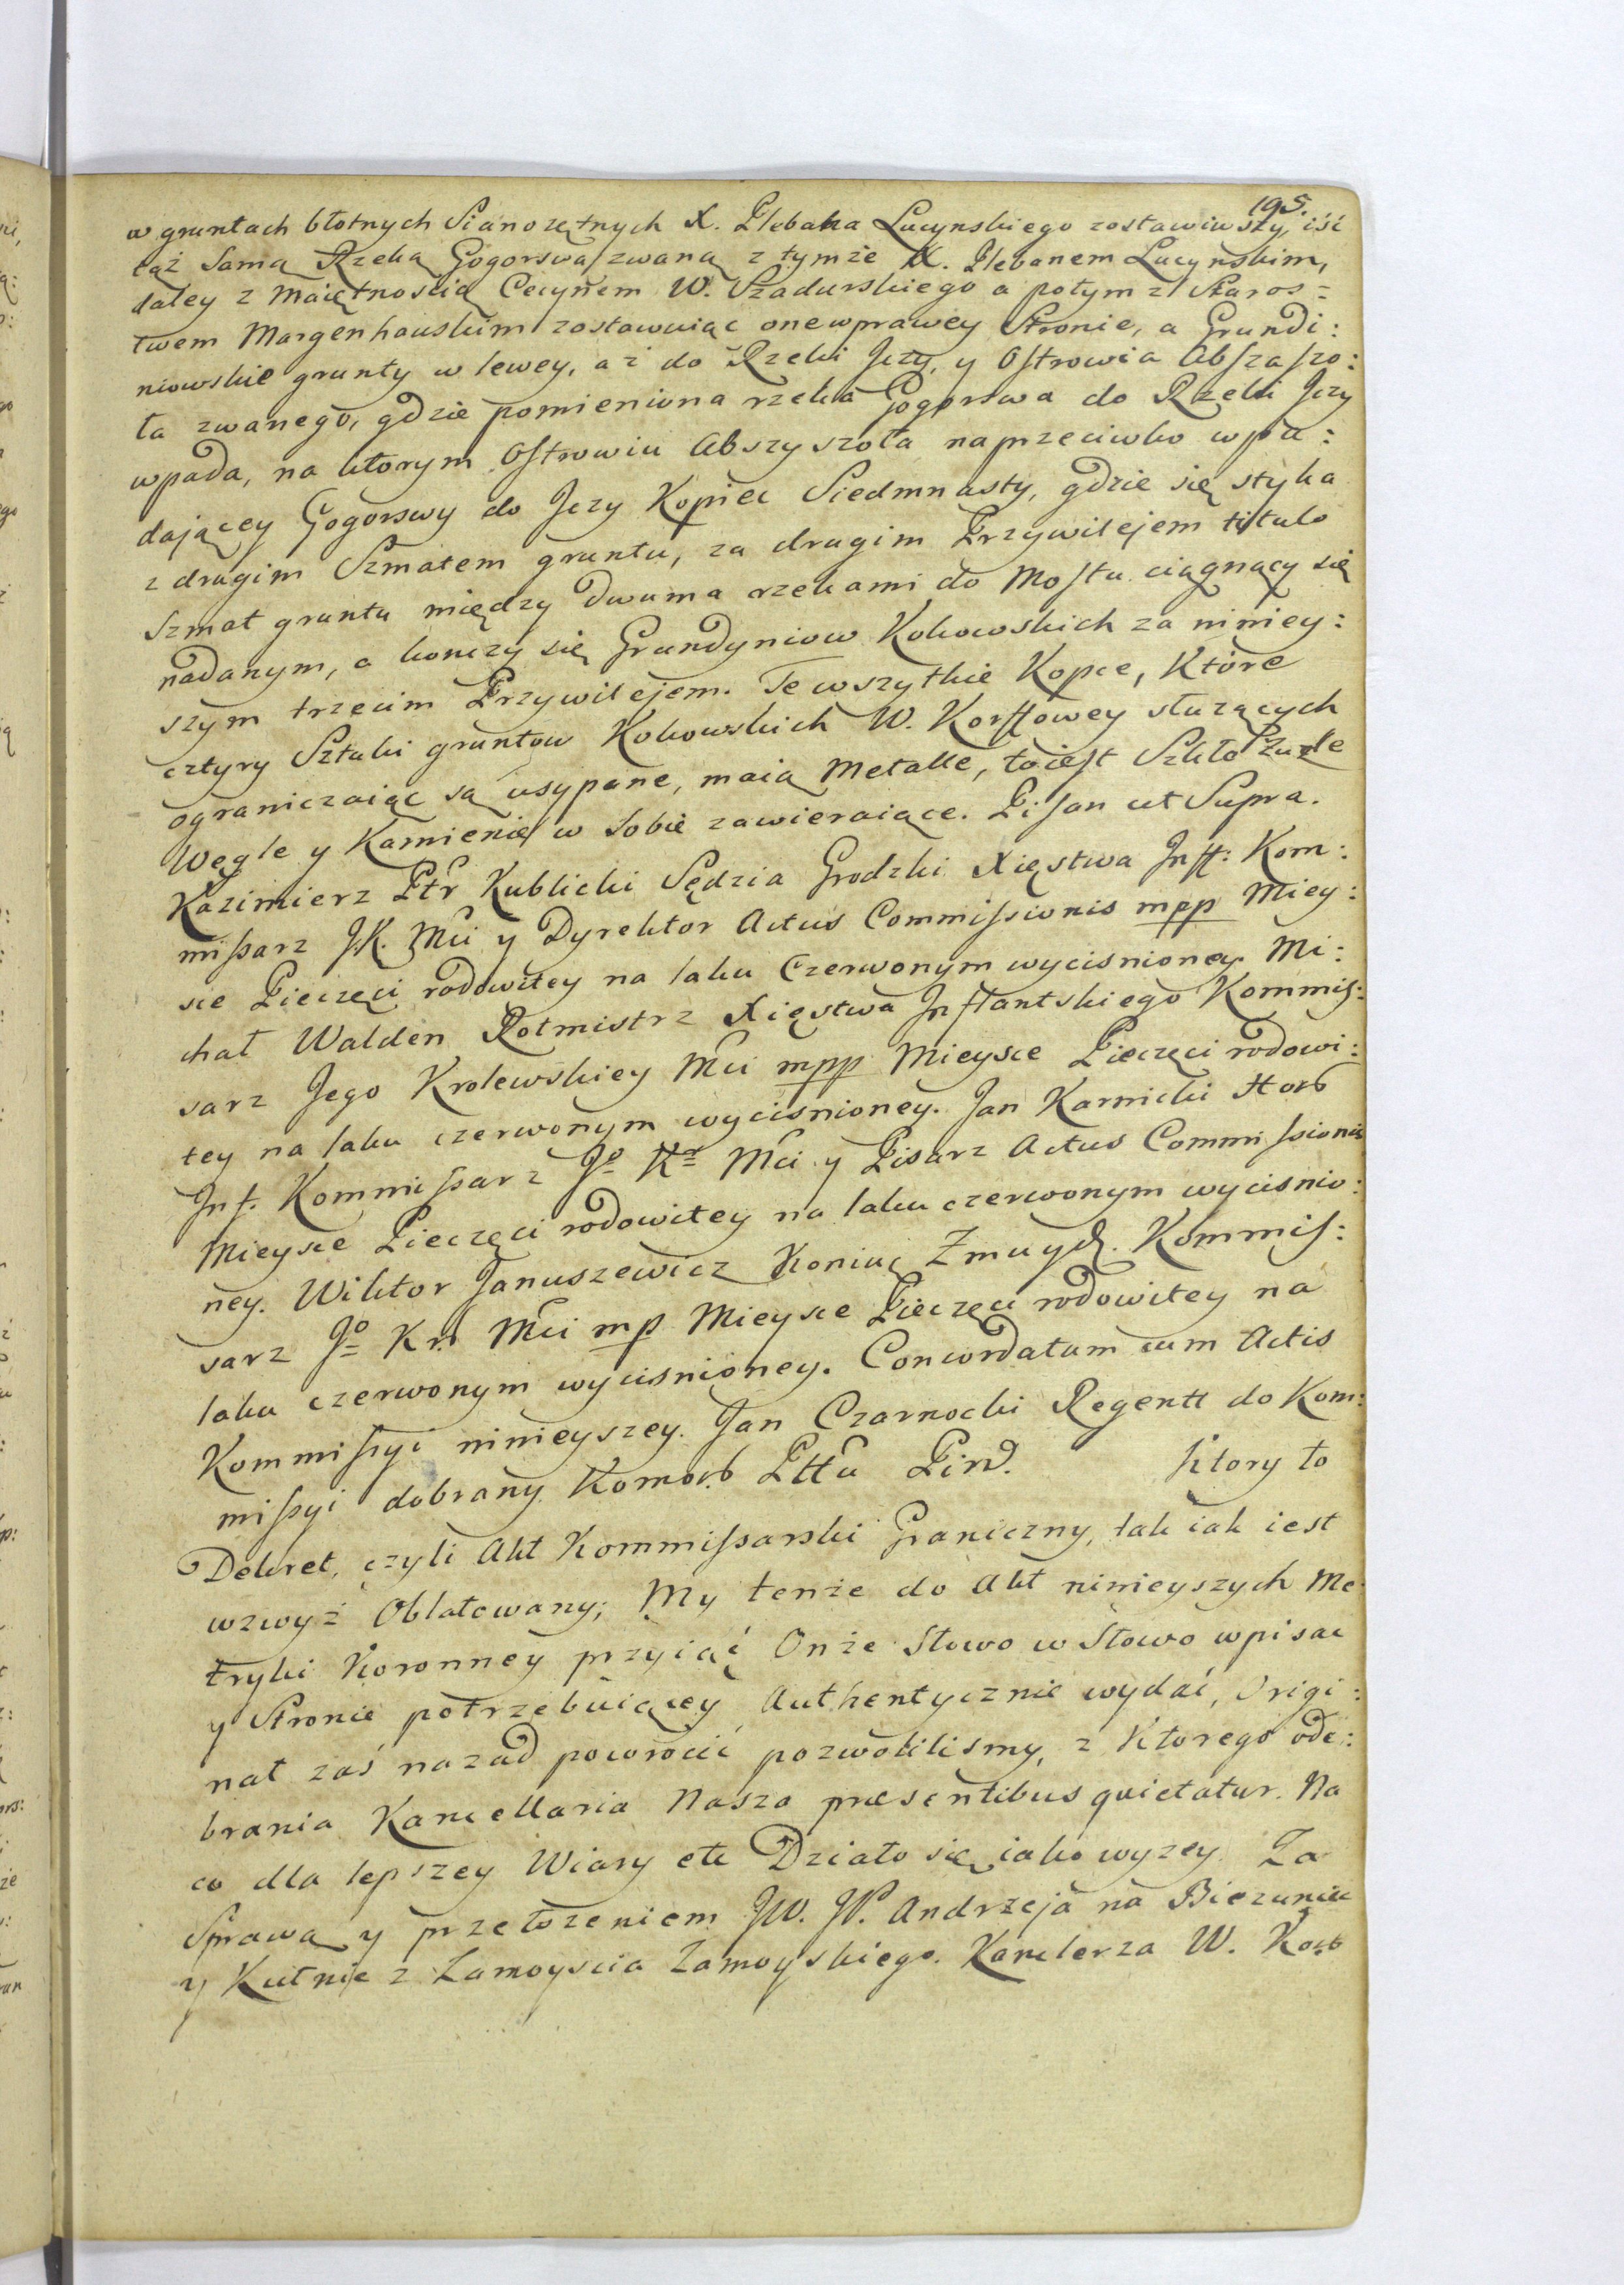 195.
w gruntach błotnych Sianorzętnych X. Plebana Lucynskiego zostawiwszy, iść
tąż Samą Rzeką Gogorswa zwaną z tymże X. Plebanem Lucynskim,
daley z Maiętnoscią Cecynem W. Szadurskiego a potym z Staros=
twem Margenhauskim zostawuiąc one w prawey Stronie, a Grundi:
niowskie grunty w lewey, aż do Rzeki Jczy, y Ostrowia Abszaszo:
ta zwanego, gdzie pomieniona rzeka Gogorswa do Rzeki Jczy
wpada, na ktorym Ostrowiu Abszyszota naprzeciwko wpa:
daiącey Gogorswy do Jczy Kopiec Siedmnasty, gdzie się styka
z drugim Szmatem gruntu, za drugim Przywilejem titulo
Szmat gruntu między dwuma rzekami do Mostu ciągnący się
nadanym, a konczy się Grundyniow Kokowskich za niniey:
szym trzecim Przywilejem. Te wszytkie Kopce, Które
cztyry Sztuki gruntow Kokowskich W. Korffowey słuzących
ograniczaiąc są usypane, maią Metalle, toiest Szkło Zuzle
Węgle y Kamienie w sobie zawieraiące. Pisan ut Supra.
Kazimierz Ptr Kublicki Sędzia Grodzki Xięstwa Jnff: Kom:
missarz JK. Mci y Dyrektor Actus Commissionis mpp Miey:
sce Pieczęci rodowitey na laku Czerwonym wycisnioney. Mi:
chał Walden Rotmistrz Xięstwa Jnflantskiego Kommis:
sarz Jego Krolewskiey Mci mpp Mieysce Pieczęci rodowi:
tey na laku czerwonym wycisnioney. Jan Karnicki Horb
Jnf. Kommissarz Jo Kr Mci y Pisarz Actus Commissionis
Mieysce Pieczęci rodowitey na laku czerwonym wycisnio:
ney. Wiktor Januszewicz Koniuą Zmuyd. Kommis:
sarz Jo Kr. Mci mp Mieysce Pieczęci rodowitey na
laku czerwonym wycisnioney. Concordatum cum Actis
Kommissyi ninieyszey. Jan Czarnocki Regentt do Kom:
missyi dobrany Komorb Pttu Pind. Ktory to
Dekret, czyli Akt Kommissarski Graniczny, tak iak iest
wzwyż Oblatowany; My tenże do Akt ninieyszych Me:
tryki Koronney przyiąć Onże Słowo w Słowo wpisac
y Stronie potrzebuiącey Authentycznie wydać, Origi:
nał zaś nazad powrocić pozwolilismy, z Ktorego ode:
brania Kancellaria Nasza præsentibus quietatur. Na
co dla lepszey Wiary etc Działo się iako wyzey. Za
Sprawą y przełożeniem JW. JP. Andrzeja na Biezuniu
y Kutnie z Zamoyscia Zamoyskiego. Kanclerza W. Korb